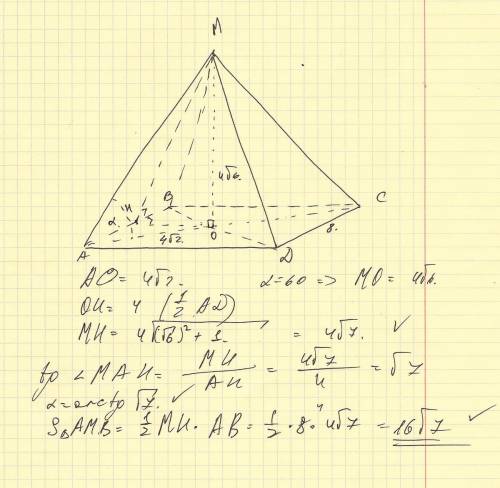 M
4√6.
B
C
H
α
O
8.
4√2.
A
D
AO = 4√2. α=60 => MO = 4√6.
OH = 4 (1/2 AD)
MH = 4√(√6)² + 1. = 4√7. ✓
tg ∠MAH = MH/AH = 4√7/4 = √7
α=arctg √7. ✓
S△AMB = 1/2 MH · AB = 1/2 · 8 · 4√7 = 16√7 ✓